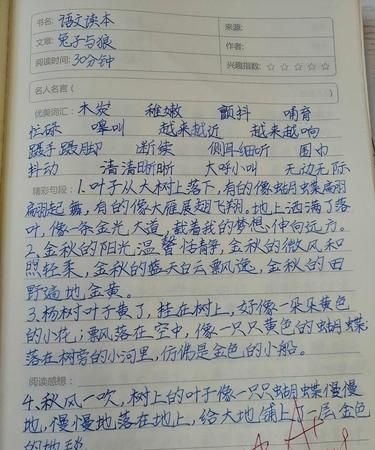 书名: 语文读本 来源:
文章: 兔子与狼 作者:
阅读时间: 30分钟 兴趣指数: ☆ ☆ ☆ ☆ ☆
名人名言(
优美词汇: 木炭 稚嫩 颤抖 哺育
忙碌 嗥叫 越来越近 越来越响
蹑手蹑脚 断续 侧耳细听 围巾
抖动 清清晰晰 大呼小叫 无边无际
精彩句段: 1.叶子从大树上落下,有的像蝴蝶翩
翩起舞,有的像大雁展翅飞翔。地上洒满了落
叶,像一条金光大道,载着我的梦想,伸向远方。
2.金秋的阳光温馨恬静,金秋的微风和
煦轻柔,金秋的蓝天白云飘逸,金秋的田
野遍地金黄。
3.杨树叶子黄了,挂在树上,好像一朵朵黄色
的小花;飘落在空中,像一只只黄色的蝴蝶
落在树旁的小河里,仿佛是金色的小船。
阅读感想:
4.秋风一吹,树上的叶子像一只只蝴蝶慢慢
地,慢慢地落在地上,给大地铺上了一层金色
的地毯